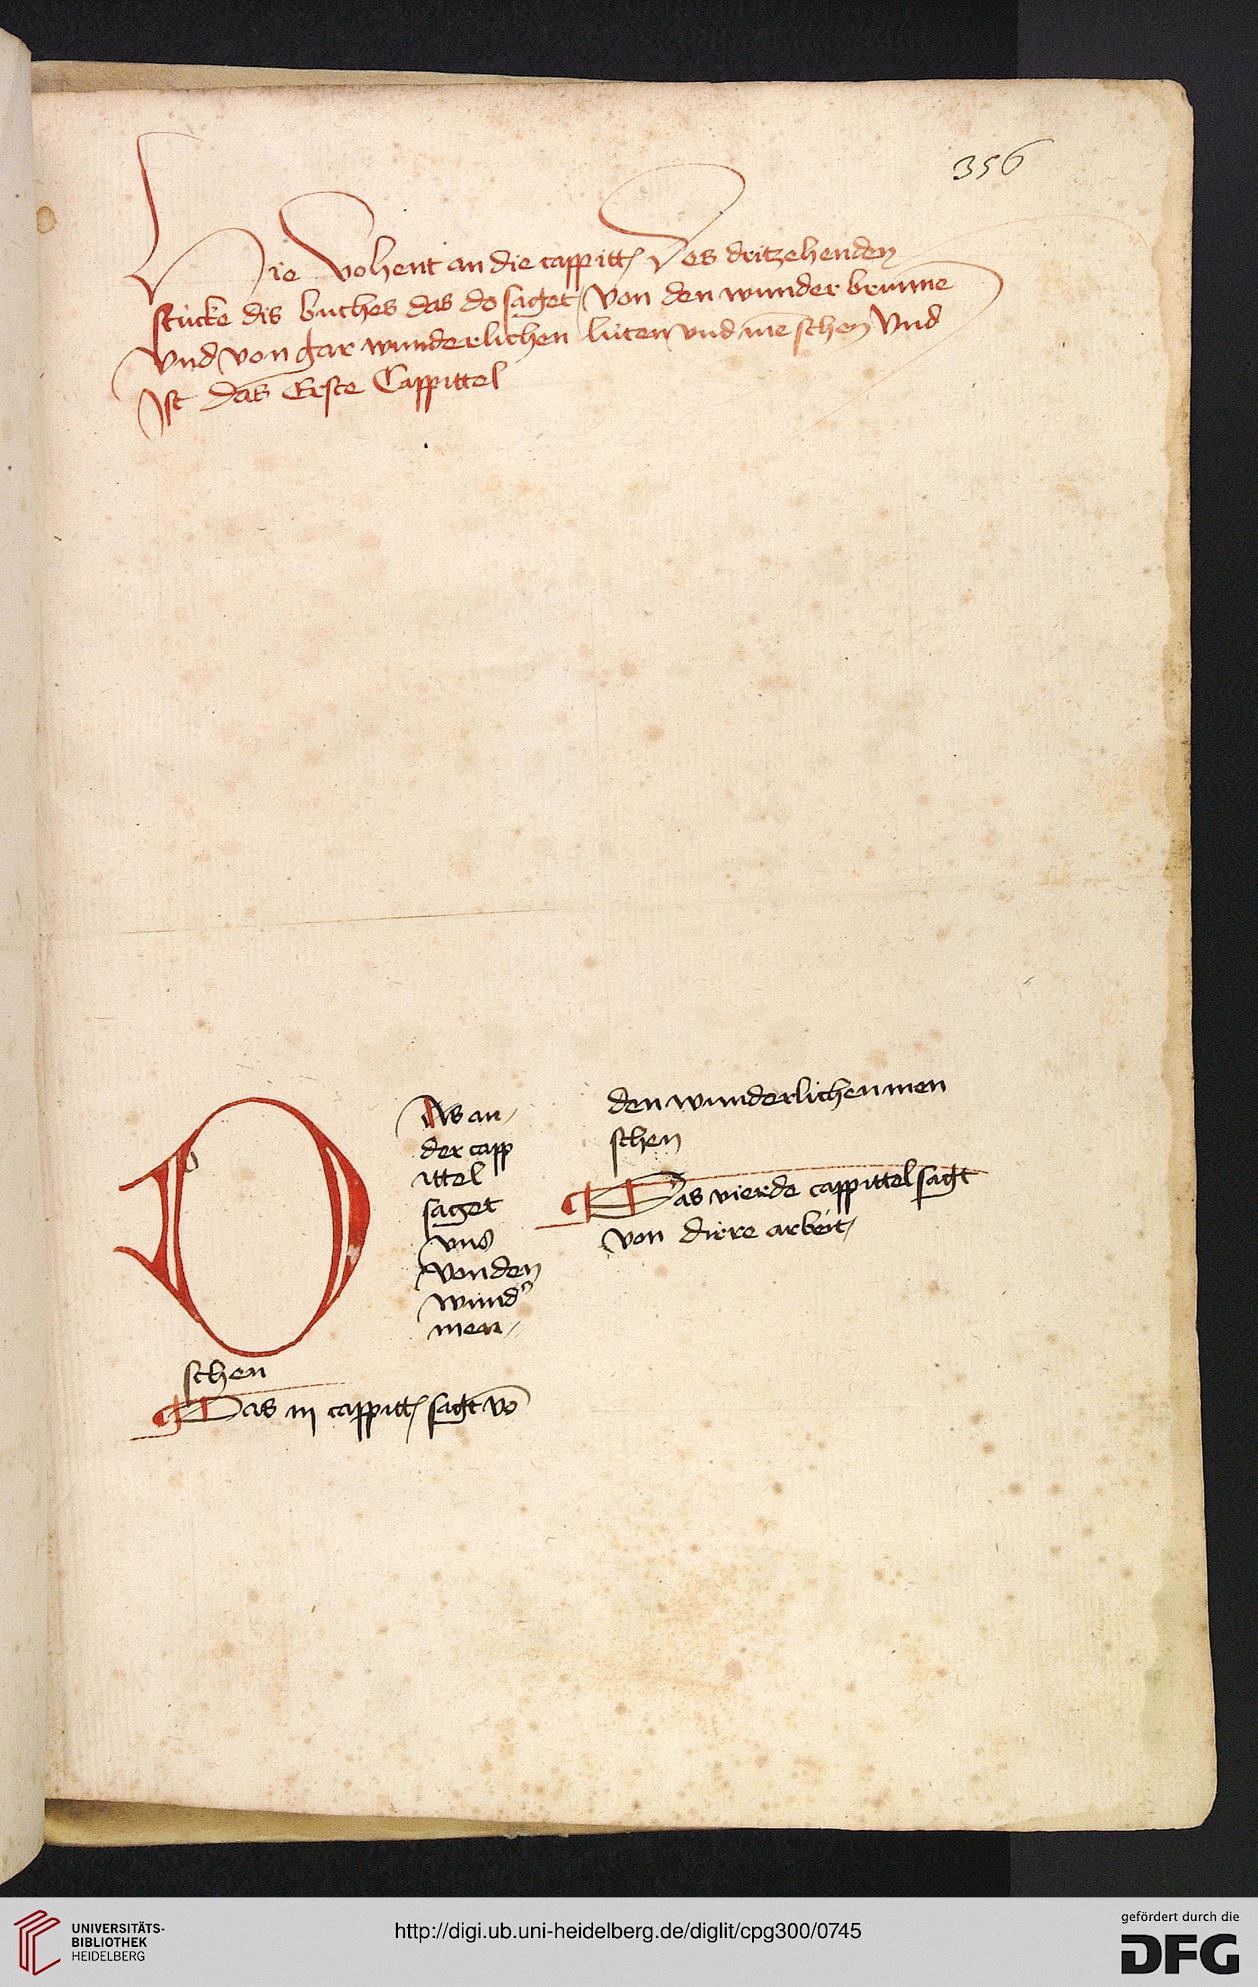 356
Hie vohent an die cappitt Des dritzehenden
stücke dis buches das do saget von den wunder brunne
vnd von gar wunderlichen lüten vnd mēschen Vnd
Ist das Erste Cappittel
DAs an⸗
der capp
ittel
saget
vns
von den
wund'
men⸗
schen
Das iij cappitt sagt vō
den wunderlichen men
schen
Das vierde cappittel sagt
von dirre arbeit
UNIVERSITÄTS-
BIBLIOTHEK
HEIDELBERG
http://digi.ub.uni-heidelberg.de/diglit/cpg300/0745
gefördert durch die
DFG